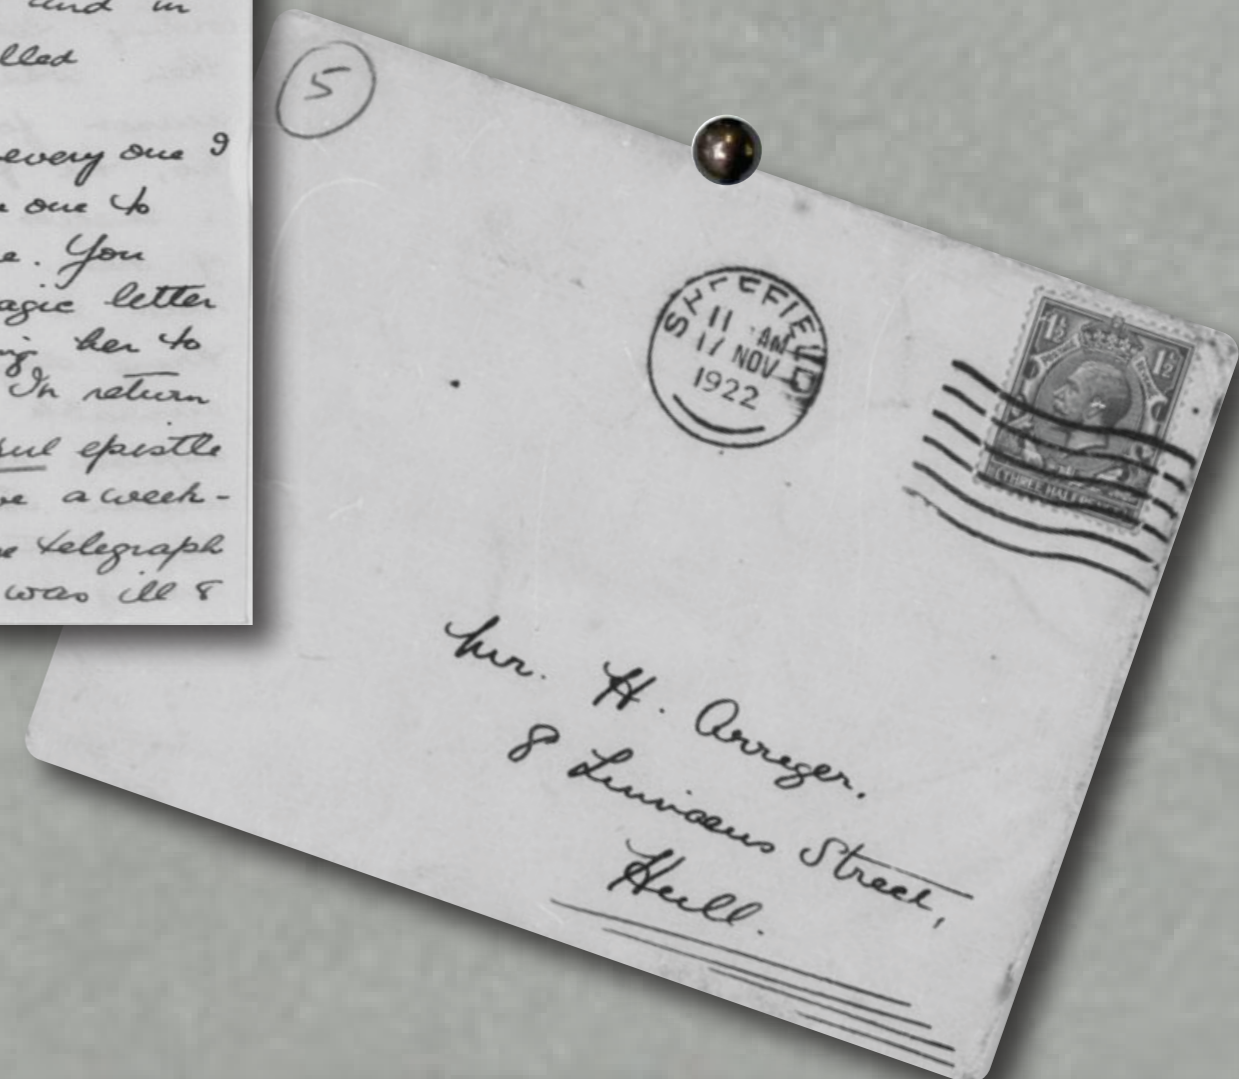 and in
lled
every one 9
one to
e. You
agic letter
her to
In return
ful epistle
ve a week-
e telegraph
was ill &
5
SHEFFIELD
11 AM
17 NOV
1922
1½ 1½
THREE HALF
Mr. H. Arreger.
8 Linnaeus Street,
Hull.